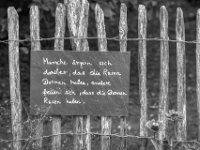 Manche ärgern sich
darüber, das die Rosen
Dornen haben, andere
freuen sich, dass die Dornen
Rosen haben.